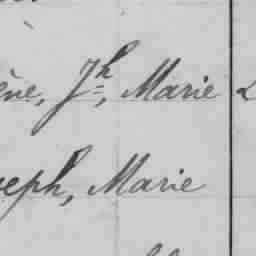 ène, Jh, Marie
seph, Marie